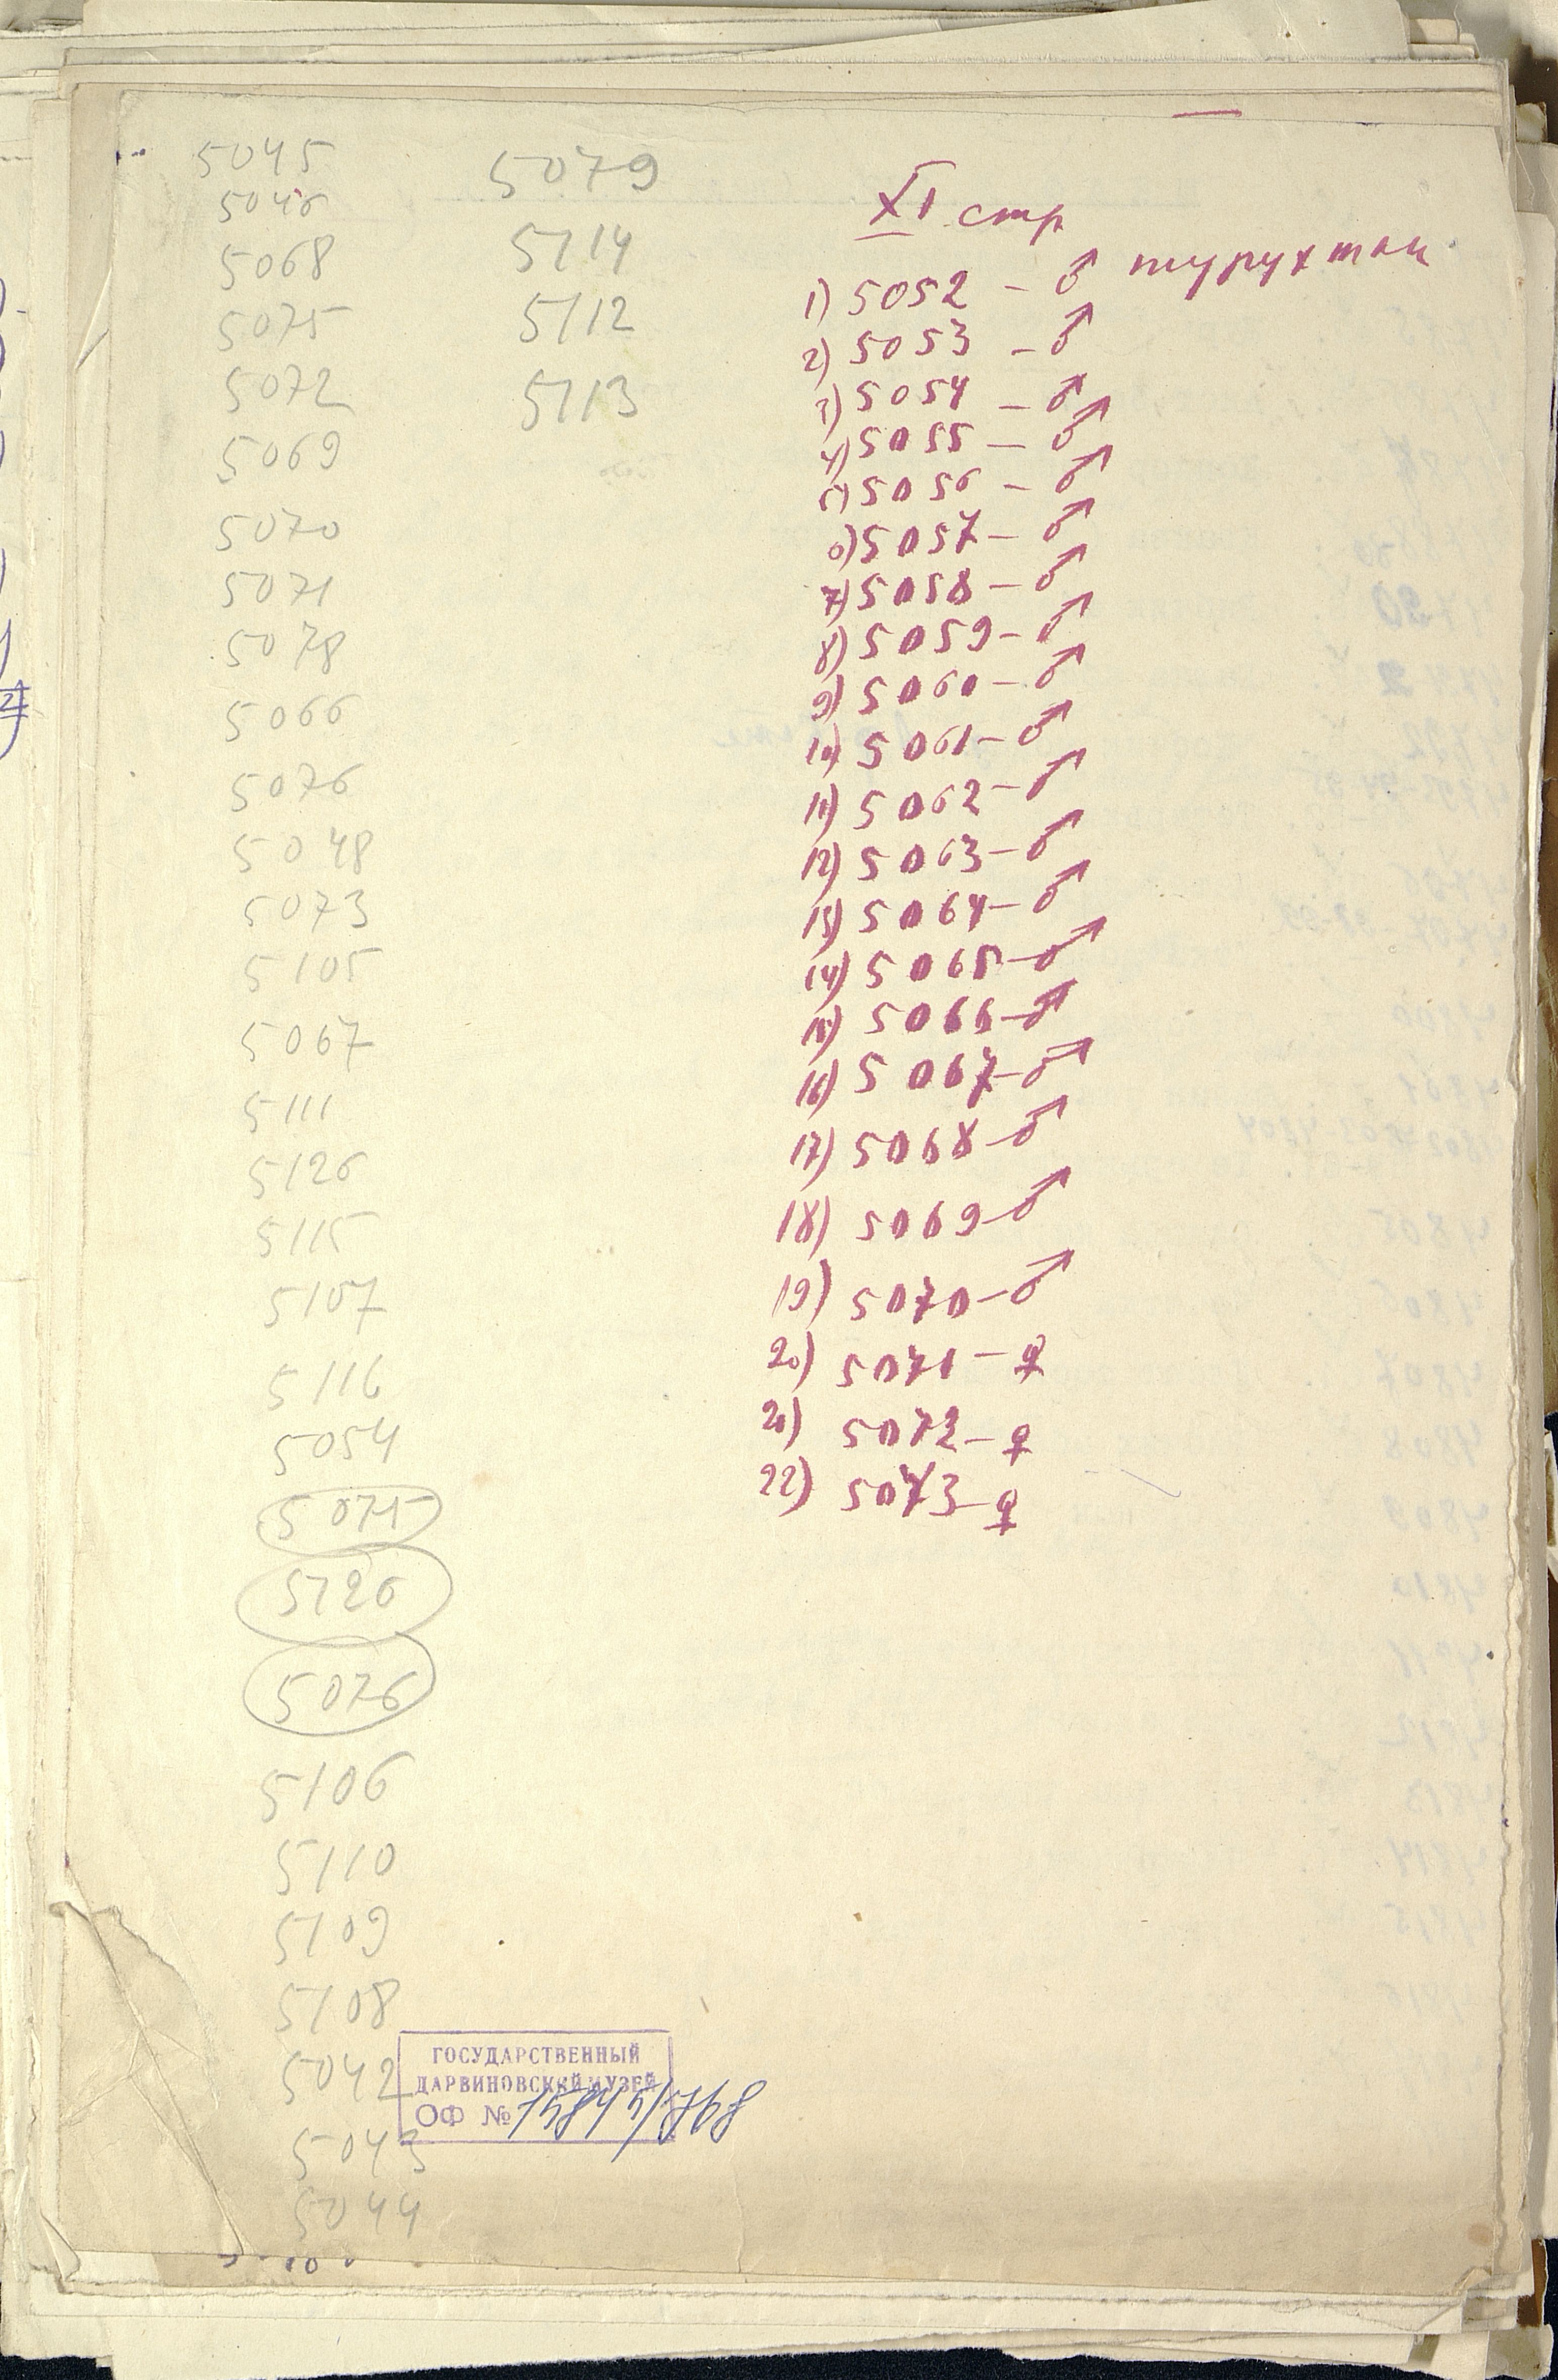 5045
5046
5068
5075
5072
5069
5070
5071
5078
5066
5076
5048
5073
5105
5067
5111
5126
5115
5107
5116
5054
5075
5126
5076
5106
5110
5109
5108
5042
5043
5044
5079
5114
5112
5113
XI стр
1) 5052 - ♂ турухтан
2) 5053 - ♂
3) 5054 - ♂
4) 5055 - ♂
5) 5056 - ♂
6) 5057 - ♂
7) 5058 - ♂
8) 5059 - ♂
9) 5060 - ♂
10) 5061 - ♂
11) 5062 - ♂
12) 5063 - ♂
13) 5064 - ♂
14) 5065 - ♂
15) 5066 - ♂
16) 5067 - ♂
17) 5068 - ♂
18) 5069 - ♂
19) 5070 - ♂
20) 5071 - ♀
21) 5072 - ♀
22) 5073 - ♀
ГОСУДАРСТВЕННЫЙ
ДАРВИНОВСКИЙ МУЗЕЙ
ОФ №15845/798